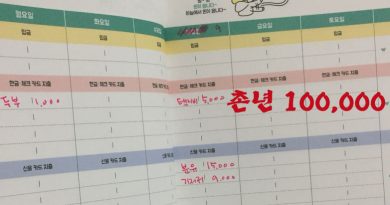 월요일 화요일 금요일 토요일
입금 입금 입금 입금
현금·체크 카드 지출 현금·체크 카드 지출 현금·체크 카드 지출 현금·체크 카드 지출
두부 1,000
5,000
촌년 100,000
신용 카드 지출 신용 카드 지출 신용 카드 지출 신용 카드 지출
분유 15,000
기저귀 9,000